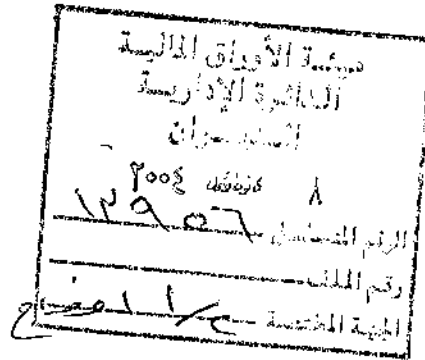 هيئة الأوراق المالية
الدائرة الإدارية
الديوان
٨ ٢٠٠٤
الرقم المتسلسل ١٢٩٥٦
رقم الملف
الجهة المختصة